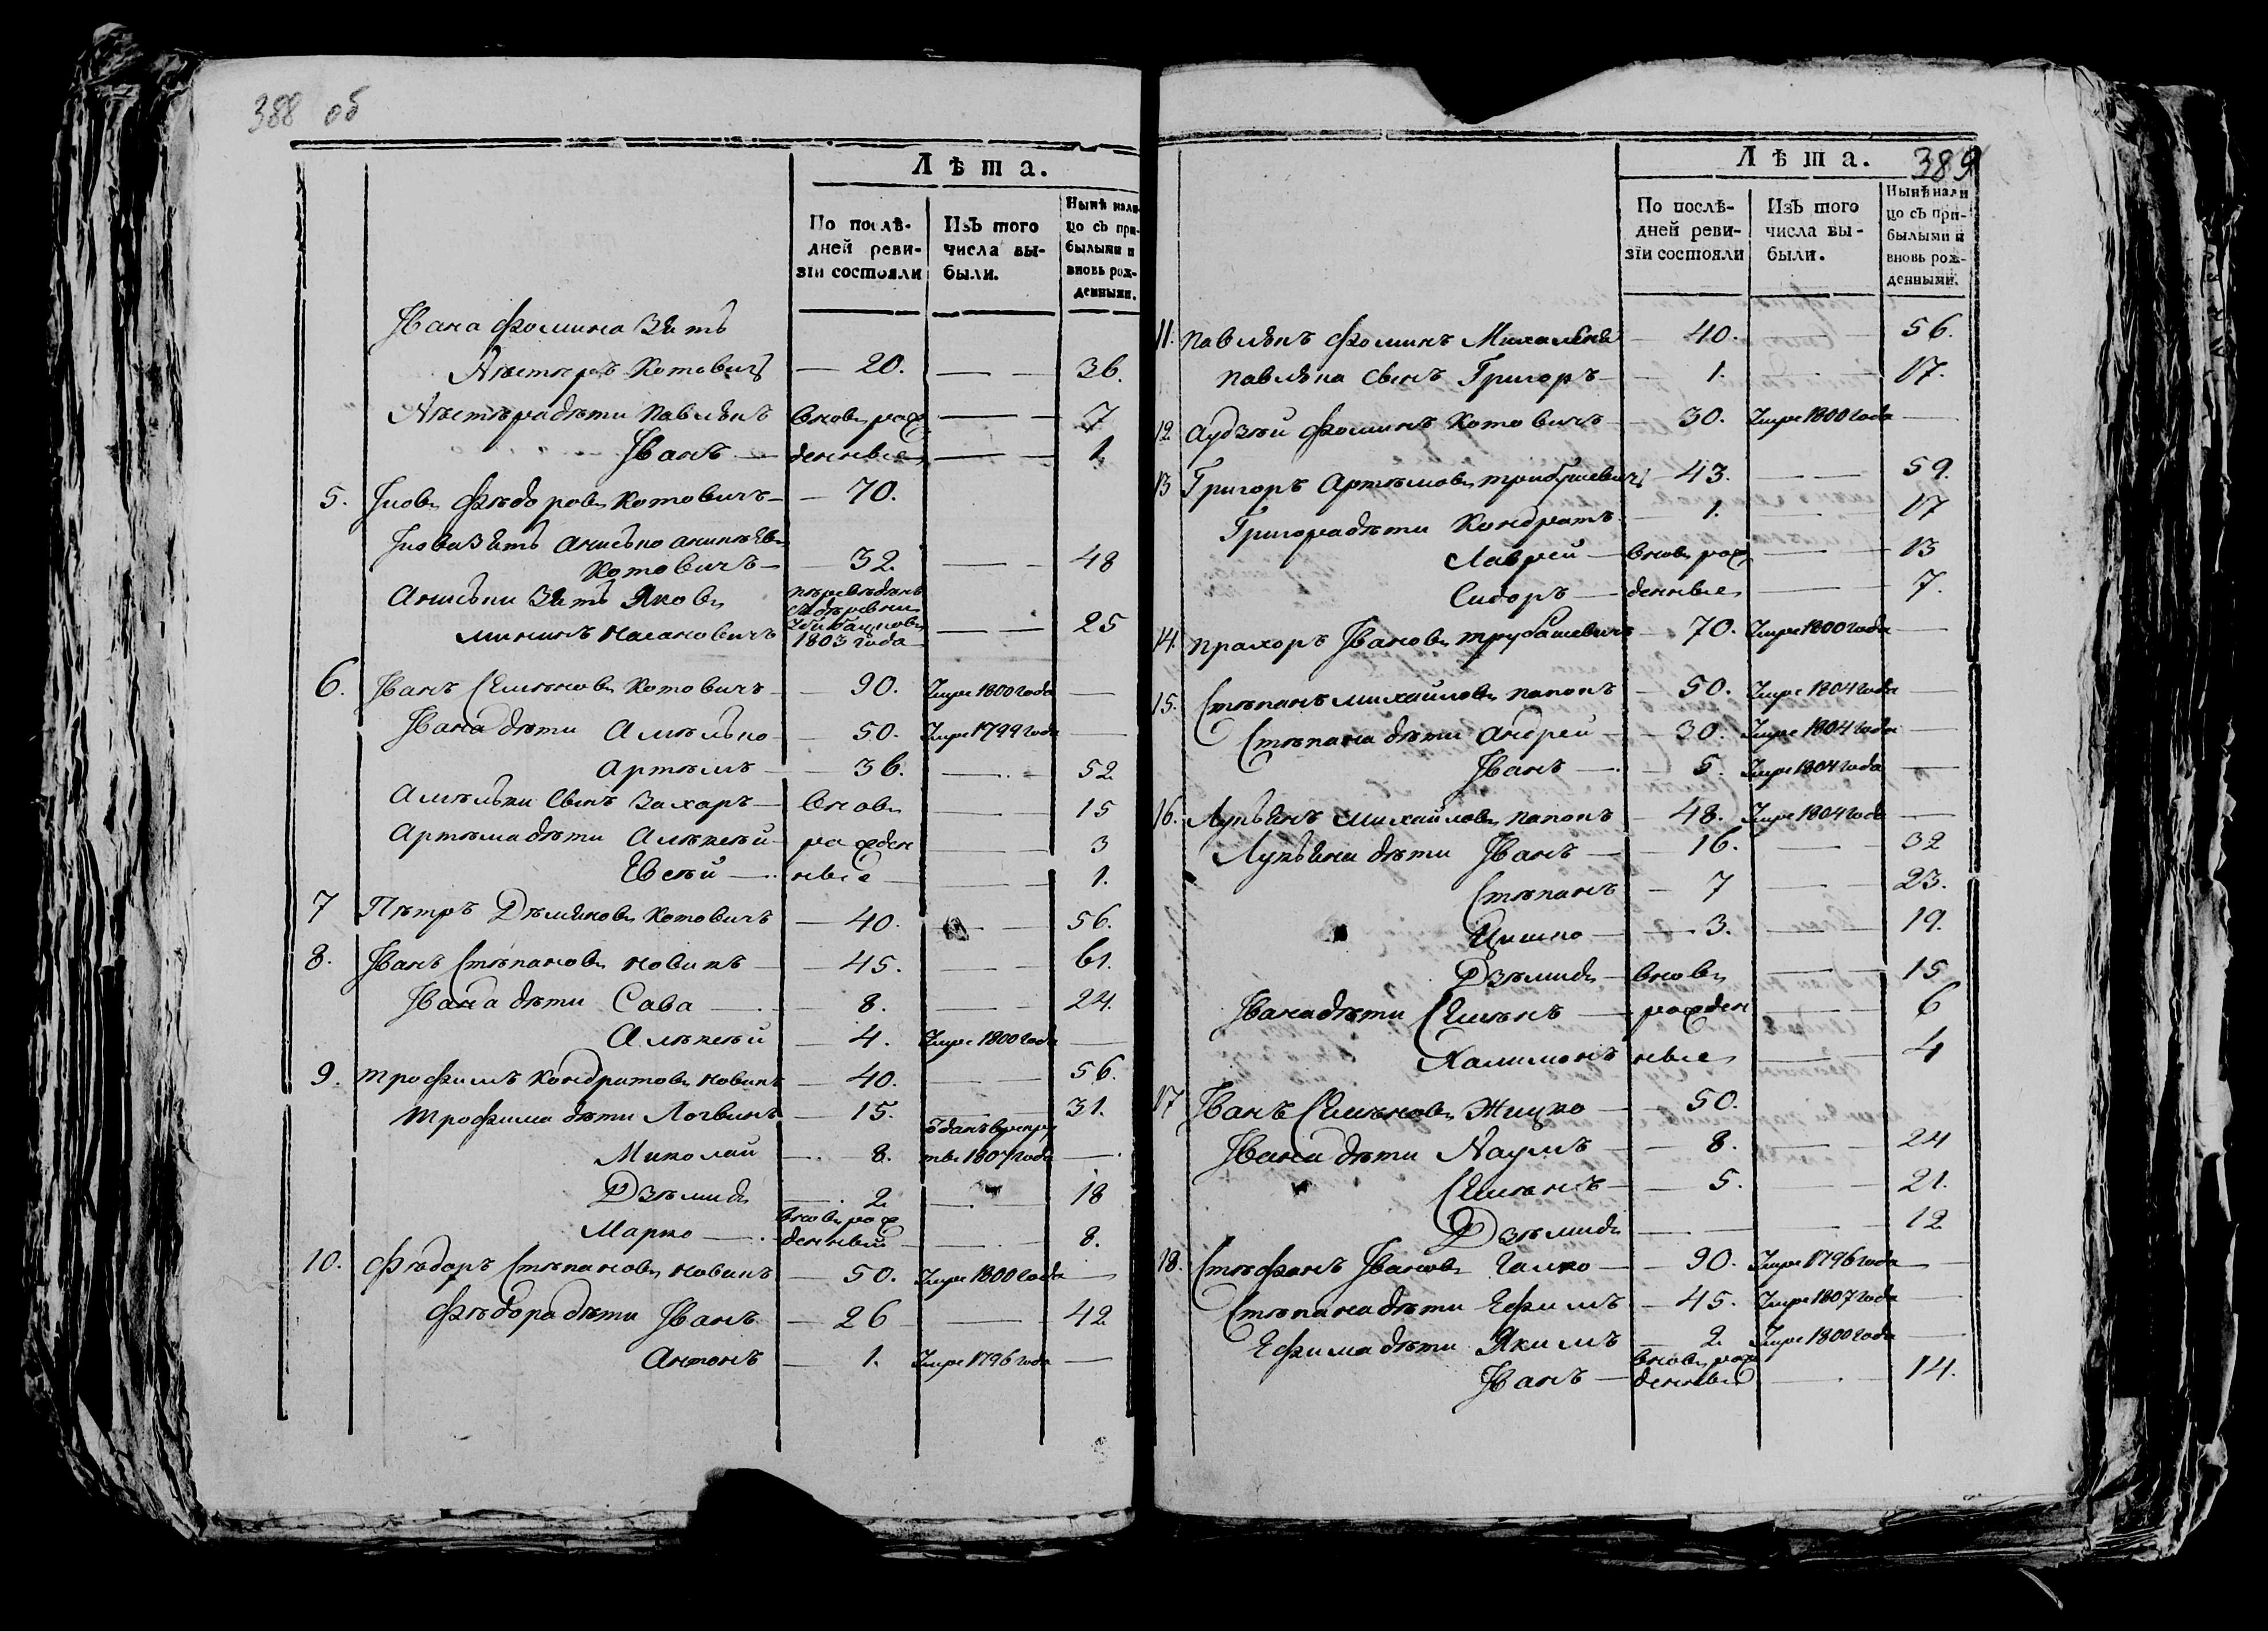 388 об
Лѣта.
По послѣдней ревизіи состояли
Изъ того числа выбыли.
Нынѣ налицо съ прибылыми и вновь рожденными.
Ивана Фомина Зять
Нѣстеръ Котовичъ — 20. — — 36.
Нѣстѣра дѣти Павлюкъ вновь рож — — 7
Иванъ — денные — — 1
5. Иовъ Фѣдоровъ Котовичъ — 70.
Иова Зять
Котовичъ — 32. — — 48
Зять Яковъ
1803 года — — 25
6. Иванъ Семѣновъ Котовичъ — 90. Умре 1800 года —
Ивана дѣти Амѣлько — 50. Умре 1799 года —
Артѣмъ — 36. — — 52
Амѣльки сынъ Захаръ — вновь — 15
Артѣма дѣти Алѣксѣй рожден — 3
Евсѣй — ные — 1.
7 Пѣтръ Дѣмяновъ Котовичъ — 40. — 56.
8. Иванъ Стѣпановъ Новикъ — 45. — — 61.
Ивана дѣти Сава — 8. — — 24.
Алѣксѣй — 4. Умре 1800 года —
9. Трофимъ Кондратовъ Новикъ — 40. — — 56.
Трофима дѣти Логвинъ — 15. — 31.
Миколай — 8. 1807 года —
Дзѣмидъ — 2. — 18
Марко — вновь рожденный — 8.
10. Фѣдоръ Стѣпановъ Новикъ — 50. Умре 1800 года —
Фѣдора дѣти Иванъ — 26 — 42
Антонъ — 1. Умре 1796 года —
389
Лѣта.
По послѣдней ревизіи состояли
Изъ того числа выбыли.
Нынѣ налицо съ прибылыми и вновь рожденными.
11. Павлюкъ Фоминъ — 40. — 56.
Павлюка сынъ Григоръ — 1. — 17.
12 Аудзѣй Фоминъ Котовичъ — 30. Умре 1800 года —
13 Григоръ Артѣмовъ — 43. — 59.
Григора дѣти Кондратъ — 1. — 17
Лаврѣй — вновь рож — 13
Сидоръ — денные — 7.
14. Прахоръ Ивановъ Трубашевичъ — 70. Умре 1800 года —
15. Стѣпанъ Михайловъ Папокъ — 50. Умре 1804 года —
Стѣпана дѣти Андрей — 30. Умре 1804 года —
Иванъ — 5. Умре 1804 года —
16. Лукьянъ Михайловъ Папокъ — 48. Умре 1804 года —
Лукьяна дѣти Иванъ — 16. — 32
Стѣпанъ — 7 — 23.
Цишко — 3. — 19.
Дзѣмидъ — вновь — 15
Ивана дѣти Семѣнъ — рожден — 6
Халимонъ ные — 4
17 Иванъ Семѣновъ Жицко — 50.
Ивана дѣти Наумъ — 8. — 24
Семѣнъ — 5. — 21.
Дзѣмидъ — — 12
18. Стѣфанъ Ивановъ Галко — 90. Умре 1796 года —
Стѣпана дѣти Ефимъ — 45. Умре 1807 года —
Ефима дѣти Якимъ — 2. Умре 1800 года —
Иванъ — вновь рожденные — 14.